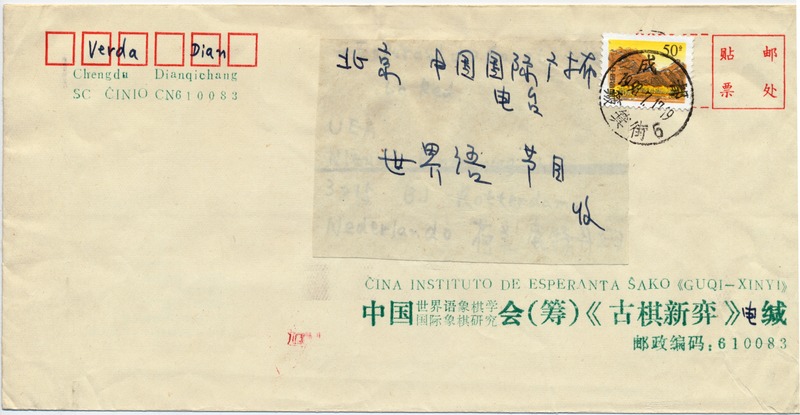 Verda Dian
Chengdu Dianqichang
SC ĈINIO CN610083
北京 中国国际广播
电台
世界语 节目
收
50分
成都
街6
贴邮
票处
UEA
Rotterdam
Nederlando
ĈINA INSTITUTO DE ESPERANTA ŜAKO《GUQI－XINYI》
中国世界语象棋学会(筹)《古棋新弈》电缄
国际象棋研究
邮政编码：610083